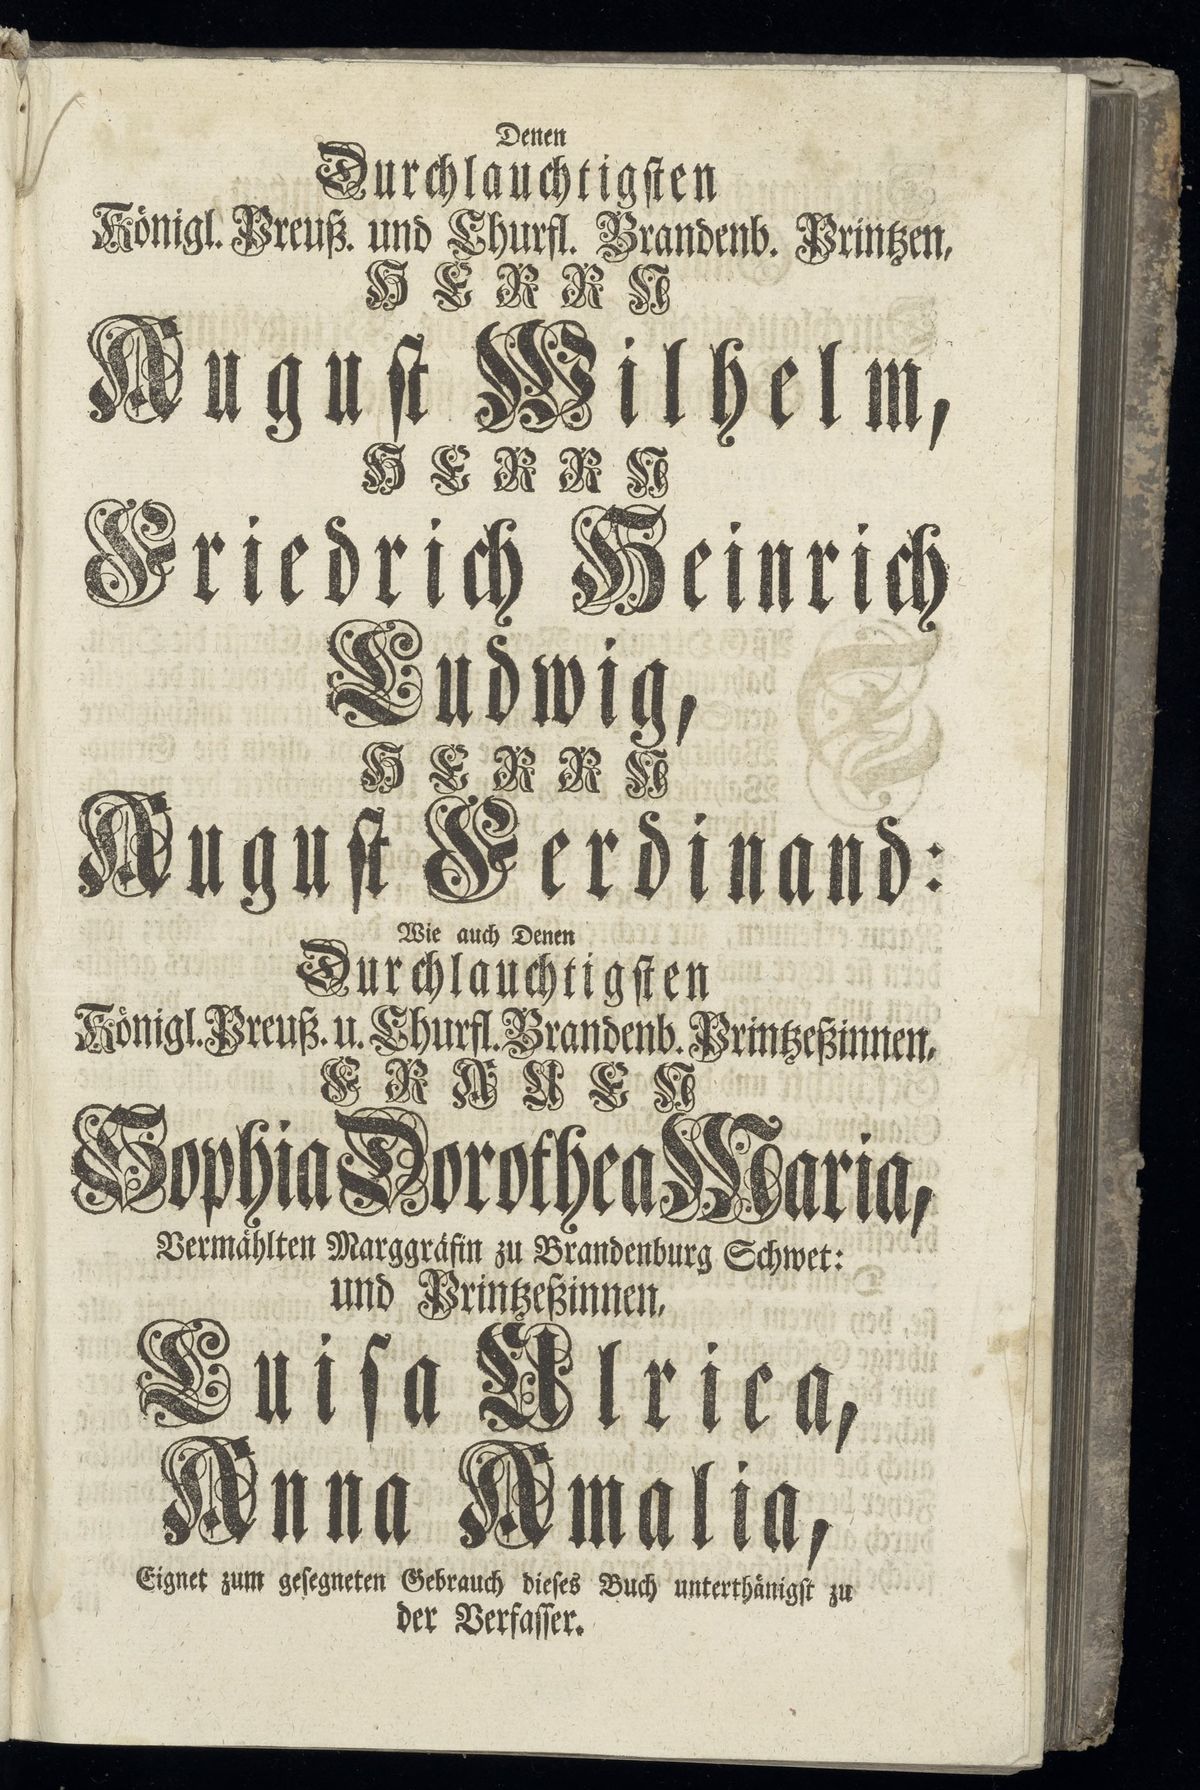 Denen
Durchlauchtigsten
Königl. Preuß. und Churfl. Brandenb. Printzen,
HERRN
August Wilhelm,
HERRN
Friedrich Heinrich
Ludwig,
HERRN
August Ferdinand:
Wie auch Denen
Durchlauchtigsten
Königl. Preuß. u. Churfl. Brandenb. Printzeßinnen,
FRAUEN
Sophia Dorothea Maria,
Vermählten Marggräfin zu Brandenburg Schwet:
und Printzeßinnen,
Luisa Ulrica,
Anna Amalia,
Eignet zum gesegneten Gebrauch dieses Buch unterthänigst zu
der Verfasser.